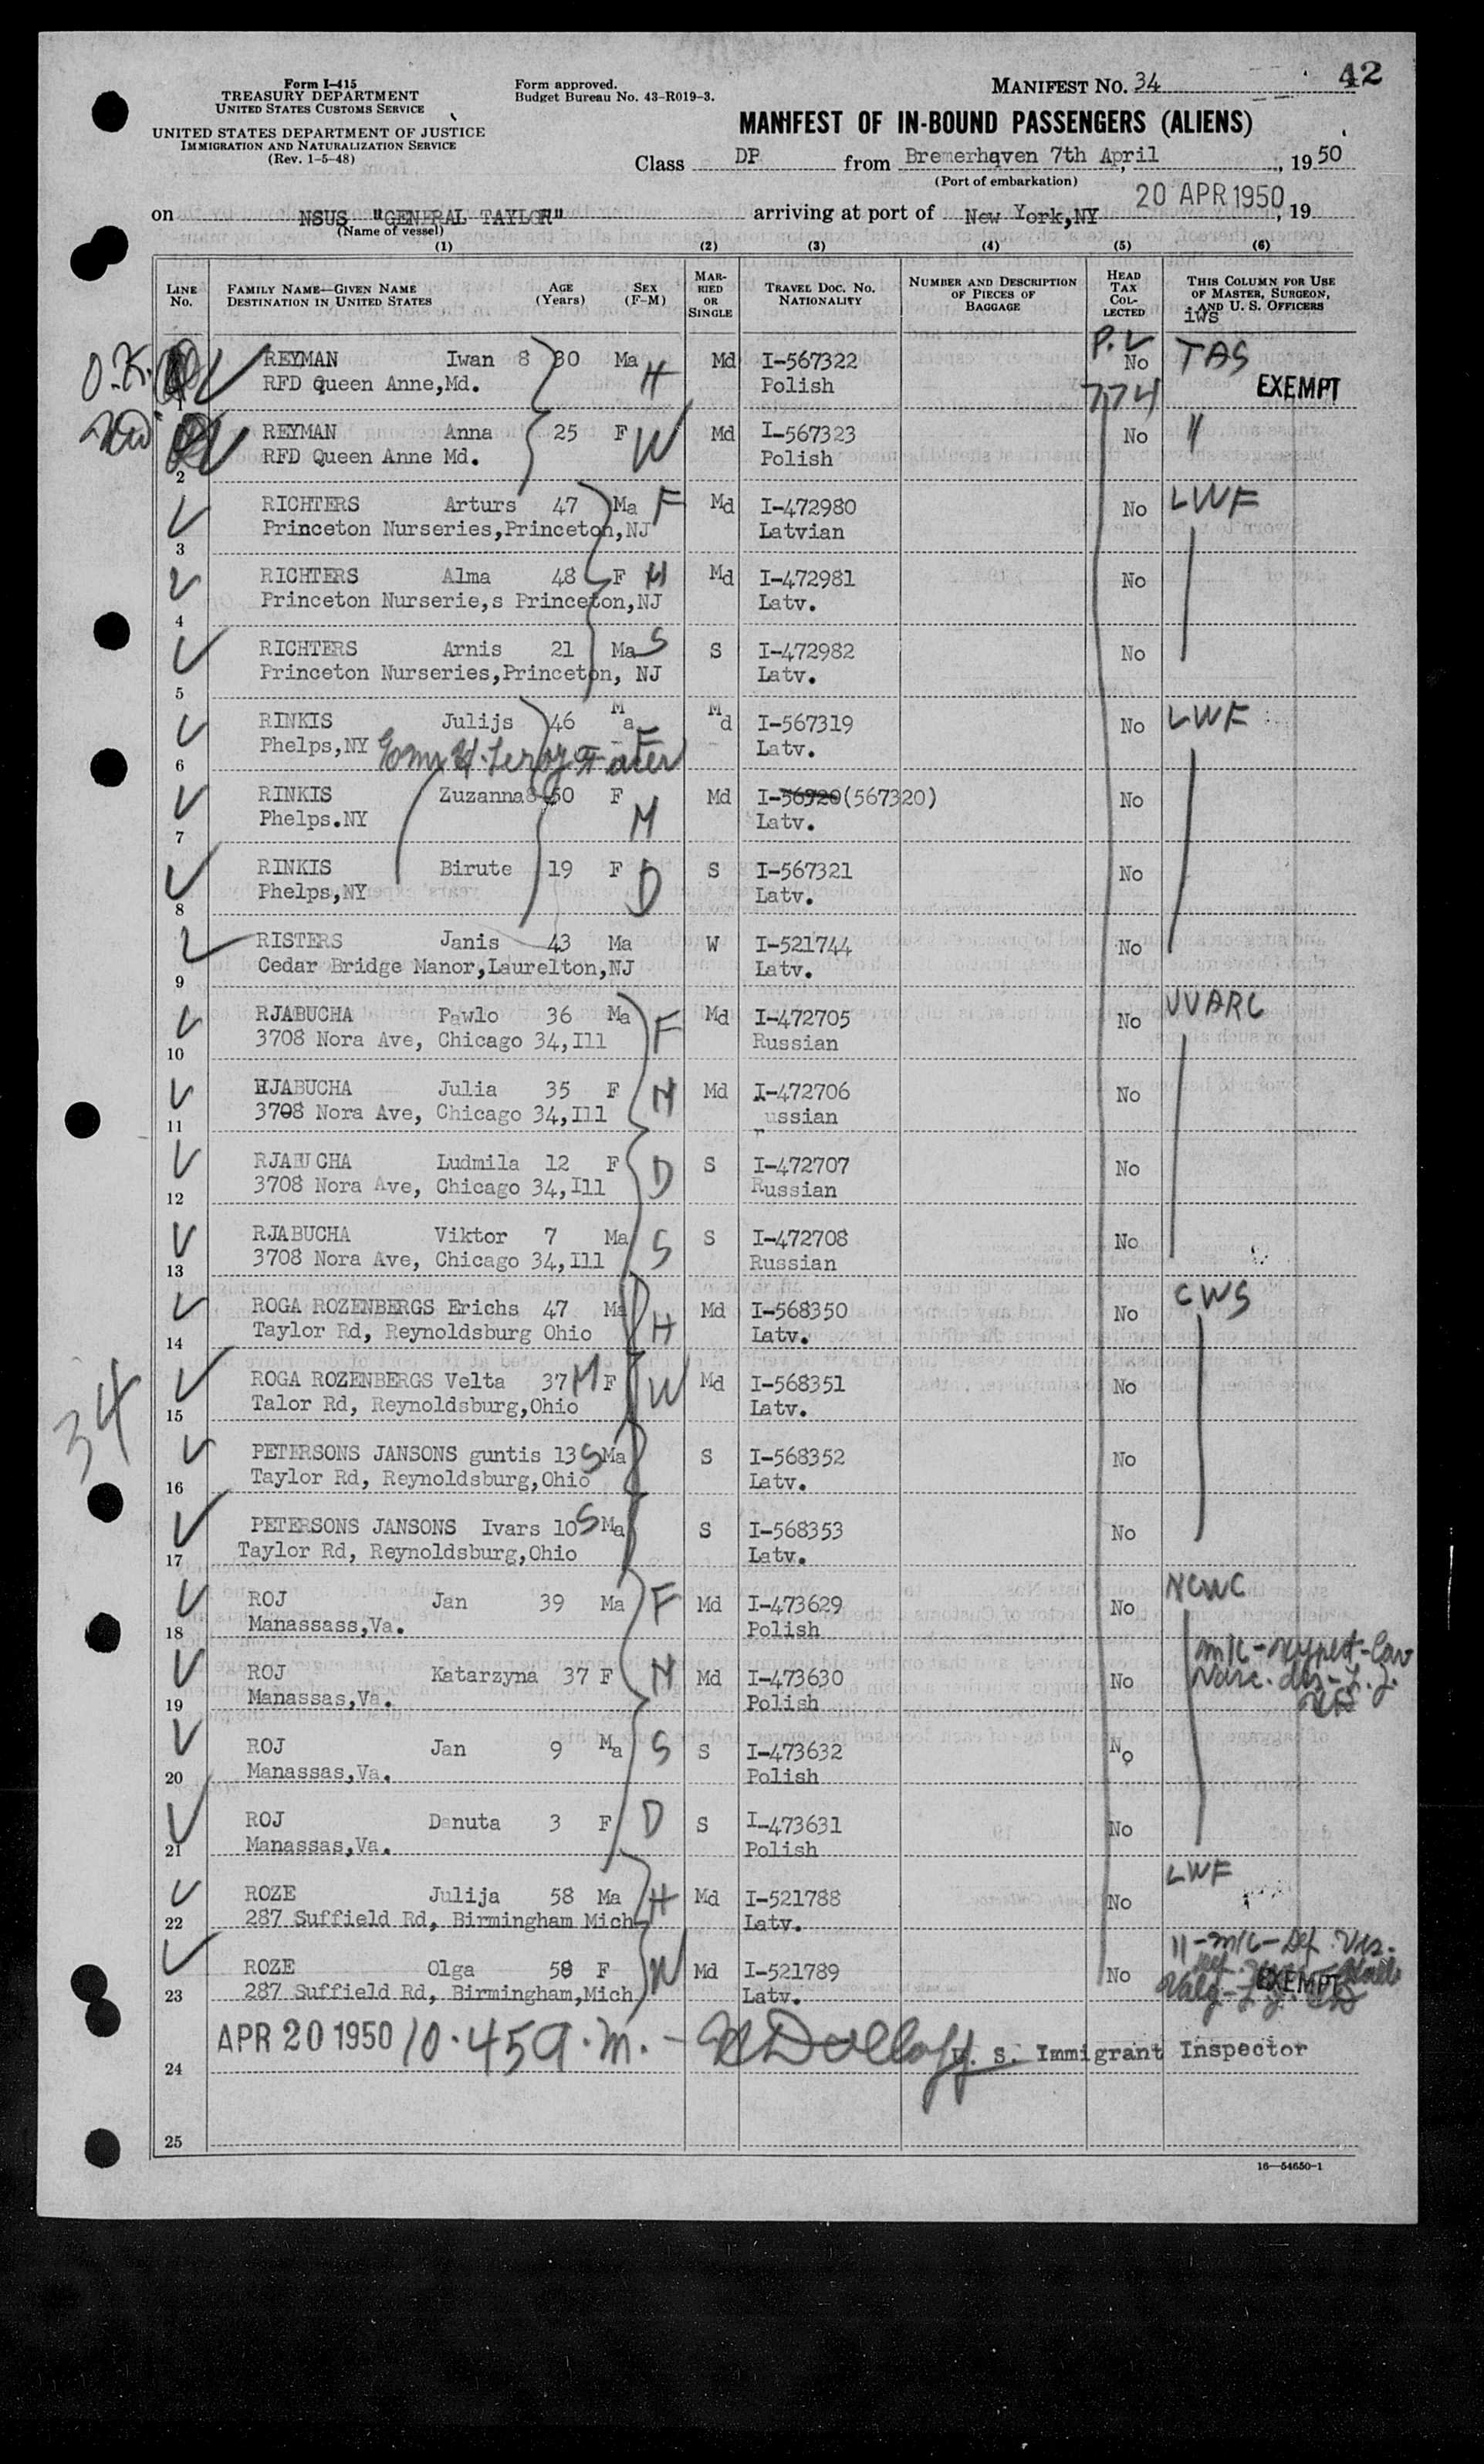 42
Form I-415
TREASURY DEPARTMENT
UNITED STATES CUSTOMS SERVICE
UNITED STATES DEPARTMENT OF JUSTICE
IMMIGRATION AND NATURALIZATION SERVICE
(Rev. 1-5-48)
Form approved.
Budget Bureau No. 43-R019-3.
MANIFEST NO. 34
MANIFEST OF IN-BOUND PASSENGERS (ALIENS)
Class DP from Bremerhaven 7th April, 1950
(Port of embarkation)
on NSUS "GENERAL TAYLOR" arriving at port of New York,NY 20 APR 1950, 19
(Name of vessel)
(1) (2) (3) (4) (5) (6)
LINE No. FAMILY NAME—GIVEN NAME DESTINATION IN UNITED STATES AGE (Years) SEX (F-M) MARRIED OR SINGLE TRAVEL DOC. NO. NATIONALITY NUMBER AND DESCRIPTION OF PIECES OF BAGGAGE HEAD TAX COLLECTED THIS COLUMN FOR USE OF MASTER, SURGEON, AND U. S. OFFICERS
iws
O.K. REYMAN Iwan 8 30 Ma H Md I-567322 P.V No TAS
1 RFD Queen Anne,Md. Polish 774 EXEMPT
REYMAN Anna 25 F W Md I-567323 No "
2 RFD Queen Anne Md. Polish
RICHTERS Arturs 47 Ma F Md I-472980 No LWF
3 Princeton Nurseries,Princeton,NJ Latvian
RICHTERS Alma 48 F M Md I-472981 No
4 Princeton Nurserie,s Princeton,NJ Latv.
RICHTERS Arnis 21 Ma S S I-472982 No
5 Princeton Nurseries,Princeton, NJ Latv.
RINKIS Julijs 46 Ma F Md I-567319 No LWF
6 Phelps,NY Latv.
RINKIS Zuzanna 50 F M Md I-56920(567320) No
7 Phelps.NY Latv.
RINKIS Birute 19 F D S I-567321 No
8 Phelps,NY Latv.
RISTERS Janis 43 Ma W I-521744 No
9 Cedar Bridge Manor,Laurelton,NJ Latv.
RJABUCHA Pawlo 36 Ma F Md I-472705 No UUARC
10 3708 Nora Ave, Chicago 34,Ill Russian
RJABUCHA Julia 35 F M Md I-472706 No
11 3708 Nora Ave, Chicago 34,Ill russian
RJABUCHA Ludmila 12 F D S I-472707 No
12 3708 Nora Ave, Chicago 34,Ill Russian
RJABUCHA Viktor 7 Ma S S I-472708 No
13 3708 Nora Ave, Chicago 34,Ill Russian
ROGA ROZENBERGS Erichs 47 Ma H Md I-568350 No CWS
14 Taylor Rd, Reynoldsburg Ohio Latv.
34
ROGA ROZENBERGS Velta 37 M F W Md I-568351 No
15 Talor Rd, Reynoldsburg,Ohio Latv.
PETERSONS JANSONS guntis 13 S Ma S I-568352 No
16 Taylor Rd, Reynoldsburg,Ohio Latv.
PETERSONS JANSONS Ivars 10 S Ma S I-568353 No
17 Taylor Rd, Reynoldsburg,Ohio Latv.
ROJ Jan 39 Ma F Md I-473629 No NCWC
18 Manassass,Va. Polish
ROJ Katarzyna 37 F M Md I-473630 No
19 Manassas,Va. Polish
ROJ Jan 9 Ma S S I-473632 No
20 Manassas,Va. Polish
ROJ Danuta 3 F D S I-473631 No
21 Manassas,Va. Polish
ROZE Julija 58 Ma H Md I-521788 No LWF
22 287 Suffield Rd, Birmingham Mich Latv.
ROZE Olga 58 F W Md I-521789 No EXEMPT
23 287 Suffield Rd, Birmingham,Mich Latv.
APR 20 1950 10.45 a.m. U. S. Immigrant Inspector
24
25
16—54650-1